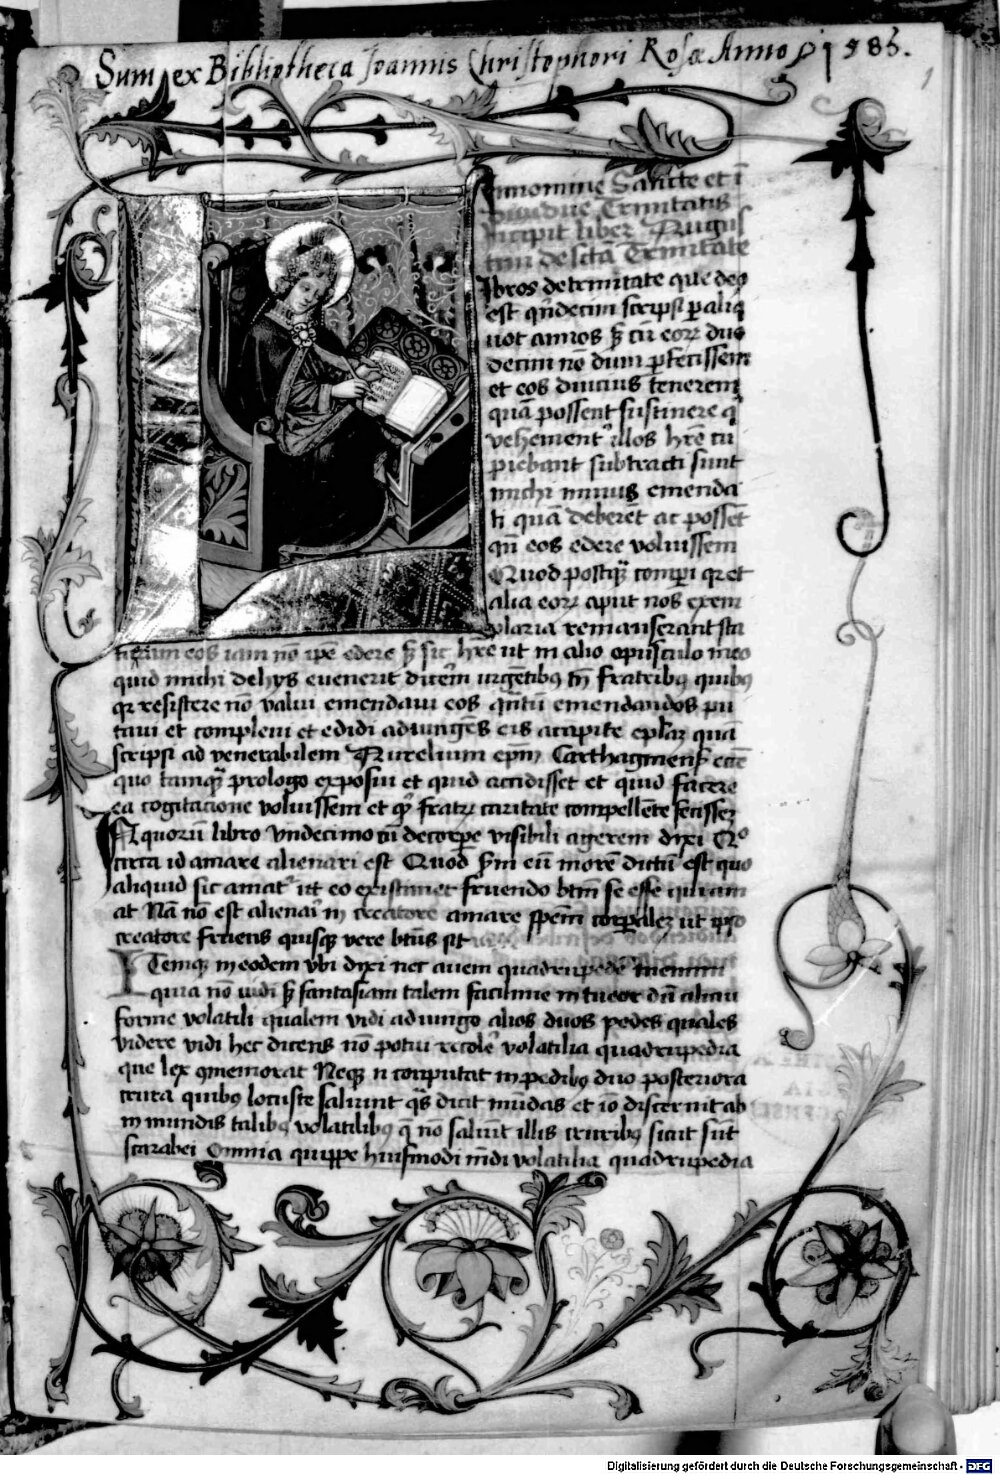 Sum ex Bibliotheca Joannis Christophori Rosæ Anno 1585.
1
In nomine Sancte et i
diuidue Trinitatis
Incipit liber Augus
tini de scta Trinitate
ibros de trinitate que deo
est qn̄decim scripsi p aliq
uot annos s̄ cū eoꝝ duo
decim nō dum pfecissem
et eos diucius tenerem
quā possent sustinere q̇
vehement illos hr̄e cu
piebant subtracti sunt
michi minus emenda
ti quā deberēt ac possēt
qn̄ eos edere voluissem
Quod postq̄ comperi qꝛ et
alia eoꝝ aput nos exem
plaria remanserant sta
tueram eos iam nō ipe edere s̄ sic hr̄e ut in alio opusculo meo
quid michi de hys euenerit dicerem urgētibꝰ tn̄ fratribꝰ quibꝰ
qꝛ resistere nō valui emendaui eos qn̄tū emendandos pu
taui et compleui et edidi adiungēs eis a capite eplaꝫ quā
scripsi ad venerabilem Aurelium epm̄ Carthaginens̄ eccē
quo tamq̄ prologo exposui et quid accidisset et quid facere
ea cogitacione voluissem et qd̓ fratrꝫ caritate compellēte fecissem
quorū libro vndecimo cū de corpe visibili agerem dixi Qͦ
circa id amare alienari est Quod s̄m eū morē dictū est quo
aliquid sic amat ut eo existimet fruendo btm̄ se esse qui am
at Nā nō est alienari in creatore amare spem̄ corpalē ut ipso
creatore fruens quisq̄ vere btūs sit
Itemq̄ in eodem vbi dixi nec auem quadrupedē memini
quia nō uidi s̄ fantasiam talem facillime intueor dū alicui
forme volatili qualem vidi adiungo alios duos pedes quales
videre vidi hec dicens nō potui recoleꝛ volatilia quadrupedia
que lex qmemorat Neq̄ n̄ conputat in pedibꝰ duo posteriora
crura quibꝰ locuste saliunt q̄s dicit mūdas et iō discernit ab
in mundis talibꝰ volatilibꝰ q̄ nō saliūt illis cruribꝰ sicut sūt
scarabei Omnia quippe huiusmodi in̄di volatilia quadrupedia
Digitalisierung gefördert durch die Deutsche Forschungsgemeinschaft - DFG